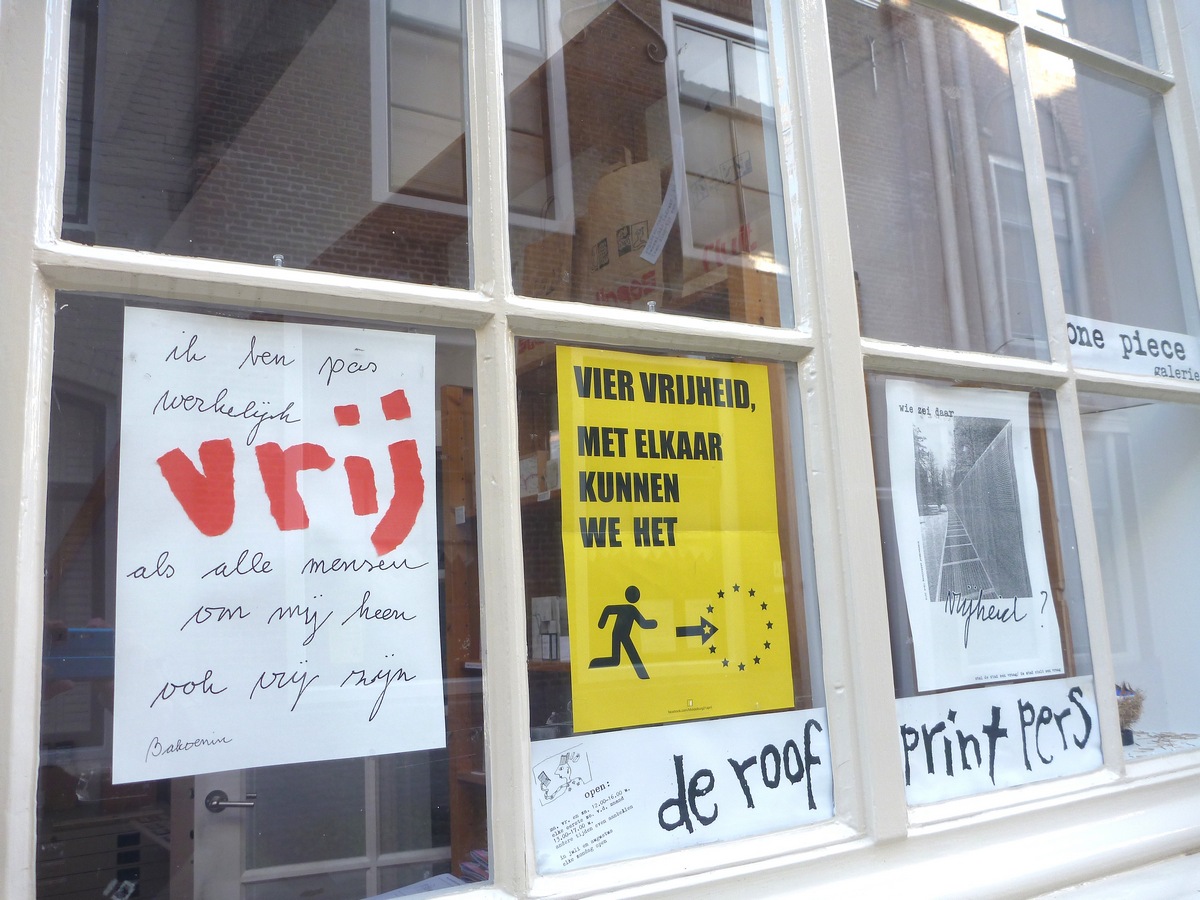 ik ben pas
werkelijk
vrij
als alle mensen
om mij heen
ook vrij zijn
Bakoenin
VIER VRIJHEID,
MET ELKAAR
KUNNEN
WE HET
wie zei daar
vrijheid ?
one piece
galerie
open:
in juli en augustus
elke zondag open
de roof
print pers